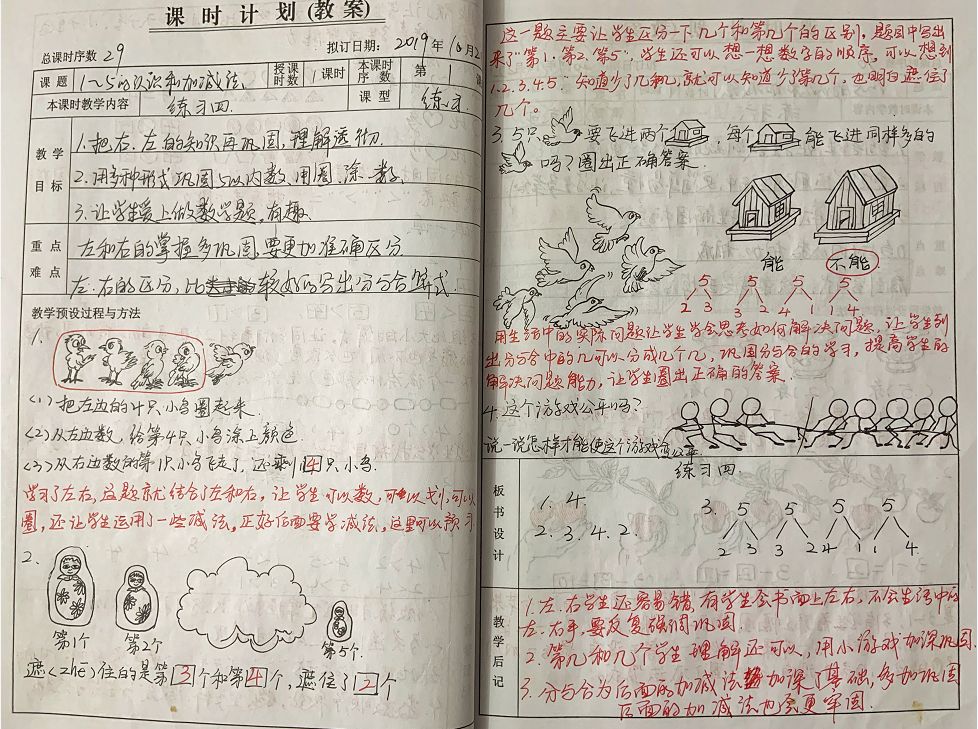 课 时 计 划 (教 案)
总课时序数 29 拟订日期： 2019 年 10月2
课 题 1~5的认识和加减法 授课时数 1 课时 本课时序 数 第 1
本课时教学内容 练习四. 课 型 练习.
教 学 目 标
1.把右、左的知识再巩固,理解透彻.
2.用多种形式巩固5以内数,用圈、涂、数.
3.让学生爱上做数学题,有趣.
重 点 难 点
左和右的掌握多巩固,要更加准确区分
左、右的区分,比较好的写出分与合算式.
教学预设过程与方法
1.
<1>把左边的4只小鸟圈起来.
<2>从左边数,给第4只小鸟涂上颜色.
<3>从右边数的第1只小鸟飞走了,还剩4只小鸟.
学习了左右,这题就结合了左和右,让学生可以数,可以划,可以
圈,还让学生运用了一些减法,正好后面要学减法,这里可以预习
2.
第1个 第2个 第5个.
遮<zhē>住的是第3个和第4个,遮住了2个
这一题主要让学生区分一下几个和第几个的区别,题目中写出
来了"第1、第2、第5",学生还可以想一想数字的顺序,可以想到
1.2.3.4.5.
几个。
3.5只 要飞进两个 ,每个 能飞进同样多的
吗?圈出正确答案.
能 不能
5 5 5 5
2 3 3 2 4 1 1 4
用生活中的实际问题让学生学会思考如何解决问题,让学生列
出分与合中的几可以分成几个几,巩固分与合的学习,提高学生的
解决问题能力,让学生圈出正确的答案.
4.这个游戏公平吗?
说一说怎样才能使这个游戏变公平.
板 书 设 计
练习四
1. 4.
2. 3. 4. 2.
3. 5 5 5 5
2 3 3 2 4 1 1 4
教 学 后 记
1.左、右学生还容易错,有学生会书面上左右,不会生活中的
左、右手,要反复强调巩固.
2.第几和几个学生理解还可以,用小游戏加深巩固.
3.分与合为后面的加减法加课了基础,多加巩固
后面的加减法也会更牢固.